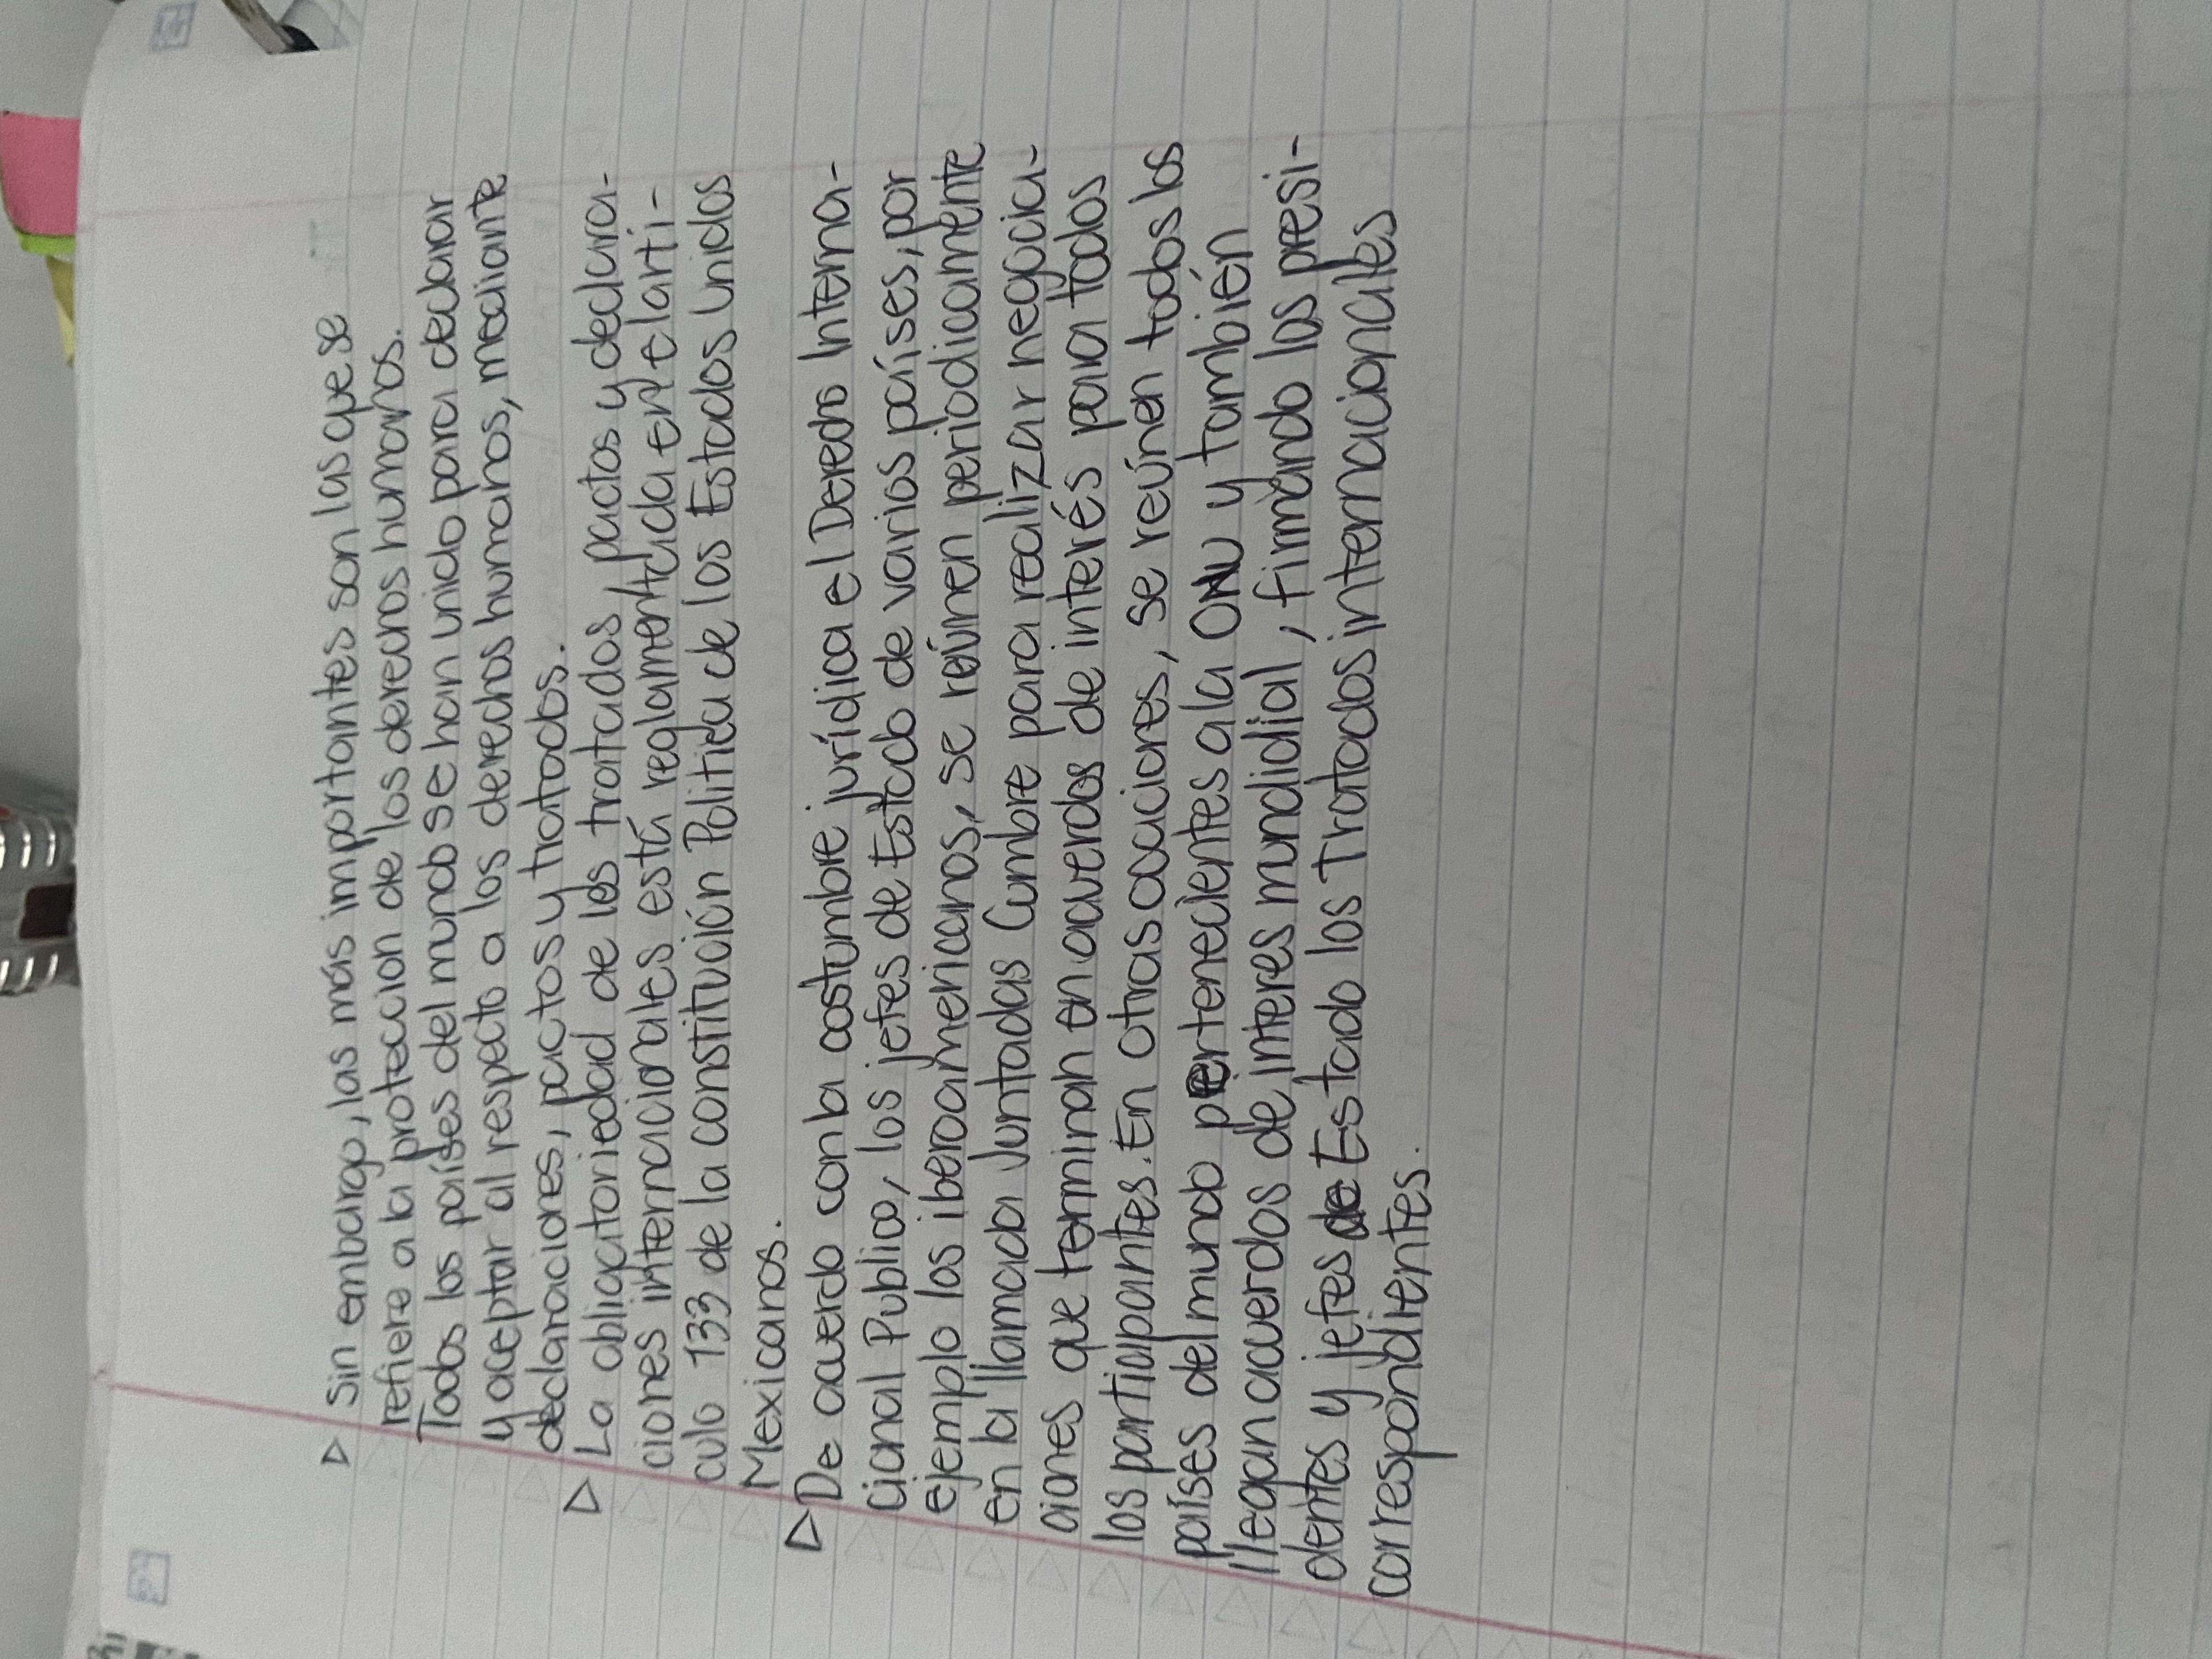 ▷ Sin embargo, las más importantes son las que se
refiere a la proteccion de los derechos humanos.
Todos los países del mundo se han unido para declarar
y aceptar al respecto a los derechos humanos, mediante
declaraciones, pactos y tratados.
▷ La obligatoriedad de los tratados, pactos y declara-
ciones internacionales está reglamentada en el artí-
culo 133 de la constitución Politica de los Estados Unidos
Mexicanos.
▷ De acuerdo con la costumbre jurídica el Derecho Interna-
cional Publico, los jefes de Estado de varios países, por
ejemplo los iberoamericanos, se reúnen periodicamente
en la llamada Juntadas Cumbre para realizar negocia-
ciones que terminan en acuerdos de interés para todos
los participantes. En otras ocaciones, se reúnen todos los
países del mundo pertenecientes a la ONU y también
llegan acuerdos de interes mundidial, firmando los presi-
dentes y jefes de Estado los Tratados internacionales
correspondientes.